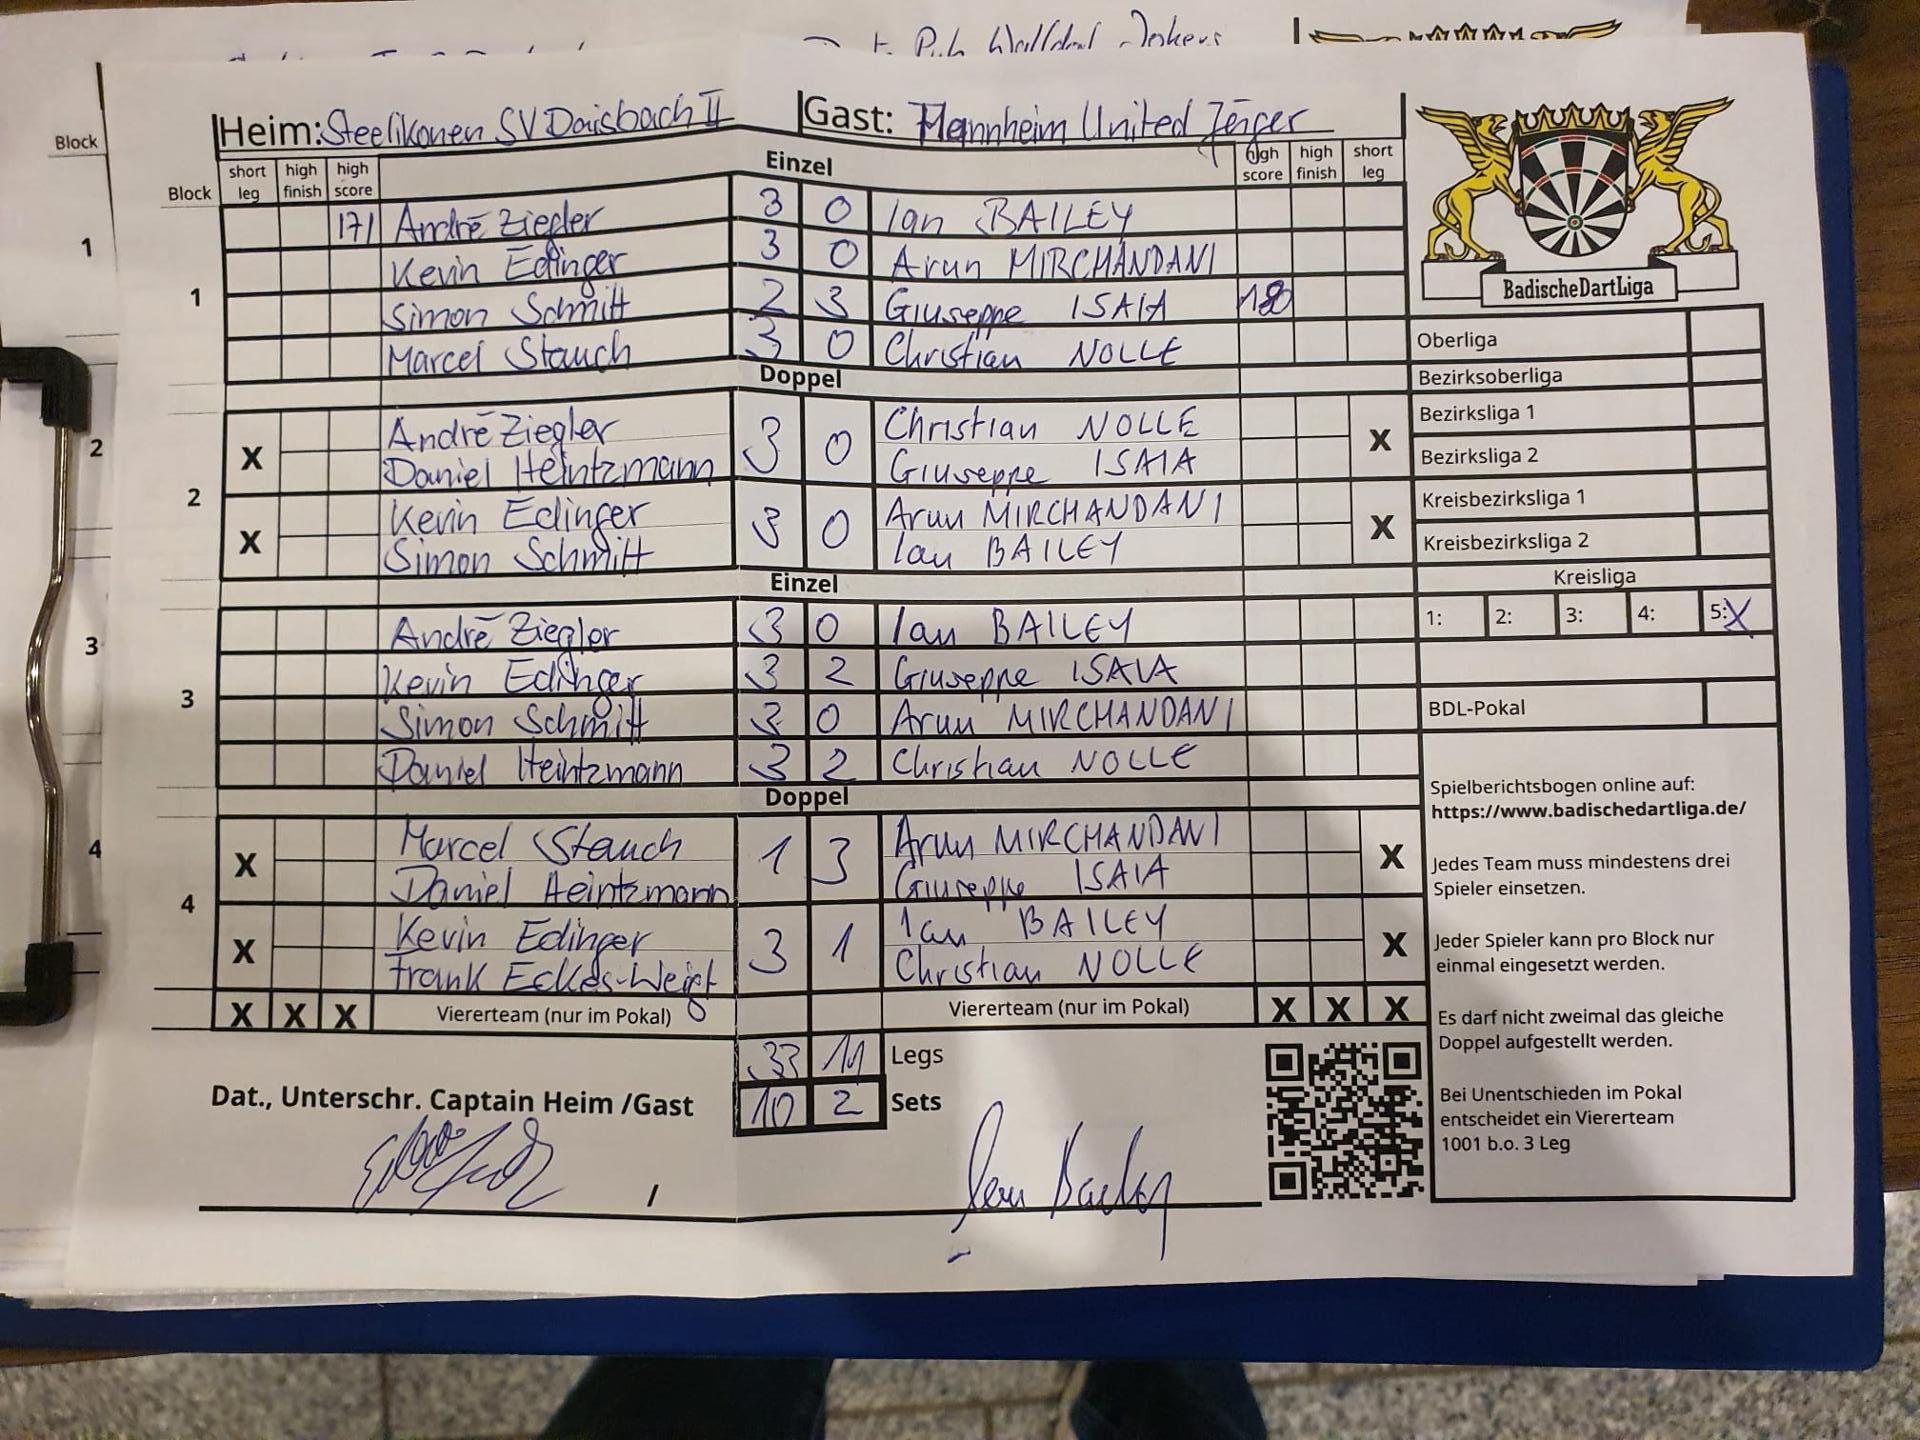 Walldorf Jokers
Block
Heim: Steelikonen SV Daisbach II Gast: Mannheim United Jäger
Block short leg high finish high score Einzel high score high finish short leg
1
1
171 André Ziegler 3 0 Ian BAILEY
Kevin Edinger 3 0 Arun MIRCHANDANI
Simon Schmitt 2 3 Giuseppe ISAIA 180
Marcel Stauch 3 0 Christian NOLLE
Doppel
2
2
X André Ziegler 3 0 Christian NOLLE X
Daniel Heintzmann Giuseppe ISAIA
X Kevin Edinger 3 0 Arun MIRCHANDANI X
Simon Schmitt Ian BAILEY
Einzel
3
3
André Ziegler 3 0 Ian BAILEY
Kevin Edinger 3 2 Giuseppe ISAIA
Simon Schmitt 3 0 Arun MIRCHANDANI
Daniel Heintzmann 3 2 Christian NOLLE
Doppel
4
4
X Marcel Stauch 1 3 Arun MIRCHANDANI X
Daniel Heintzmann Giuseppe ISAIA
X Kevin Edinger 3 1 Ian BAILEY X
Frank Eckes-Weigt Christian NOLLE
X X X Viererteam (nur im Pokal) Viererteam (nur im Pokal) X X X
33 11 Legs
10 2 Sets
Dat., Unterschr. Captain Heim /Gast
/
Ian Bailey
BadischeDartLiga
Oberliga
Bezirksoberliga
Bezirksliga 1
Bezirksliga 2
Kreisbezirksliga 1
Kreisbezirksliga 2
Kreisliga
1: 2: 3: 4: 5: X
BDL-Pokal
Spielberichtsbogen online auf:
https://www.badischedartliga.de/
Jedes Team muss mindestens drei
Spieler einsetzen.
Jeder Spieler kann pro Block nur
einmal eingesetzt werden.
Es darf nicht zweimal das gleiche
Doppel aufgestellt werden.
Bei Unentschieden im Pokal
entscheidet ein Viererteam
1001 b.o. 3 Leg